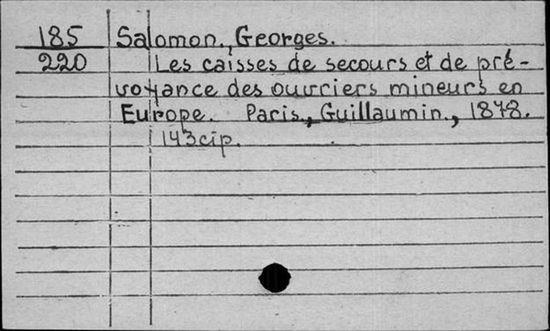 185 Salomon, Georges.
220 Les caisses de secours et de pré-
voyance des ouvriers mineurs en
Europe. Paris, Guillaumin, 1878.
143cip.